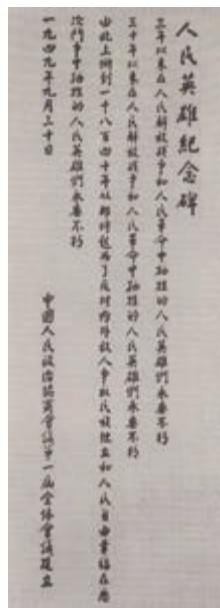 人民英雄紀念碑
三年以來在人民解放戰爭和人民革命中犧牲的人民英雄們永垂不朽
三十年以來在人民解放戰爭和人民革命中犧牲的人民英雄們永垂不朽
由此上溯到一千八百四十年從那時起為了反對內外敵人爭取民族獨立和人民自由幸福在歷
次鬥爭中犧牲的人民英雄們永垂不朽
中國人民政治協商會議第一屆全體會議建立
一九四九年九月三十日